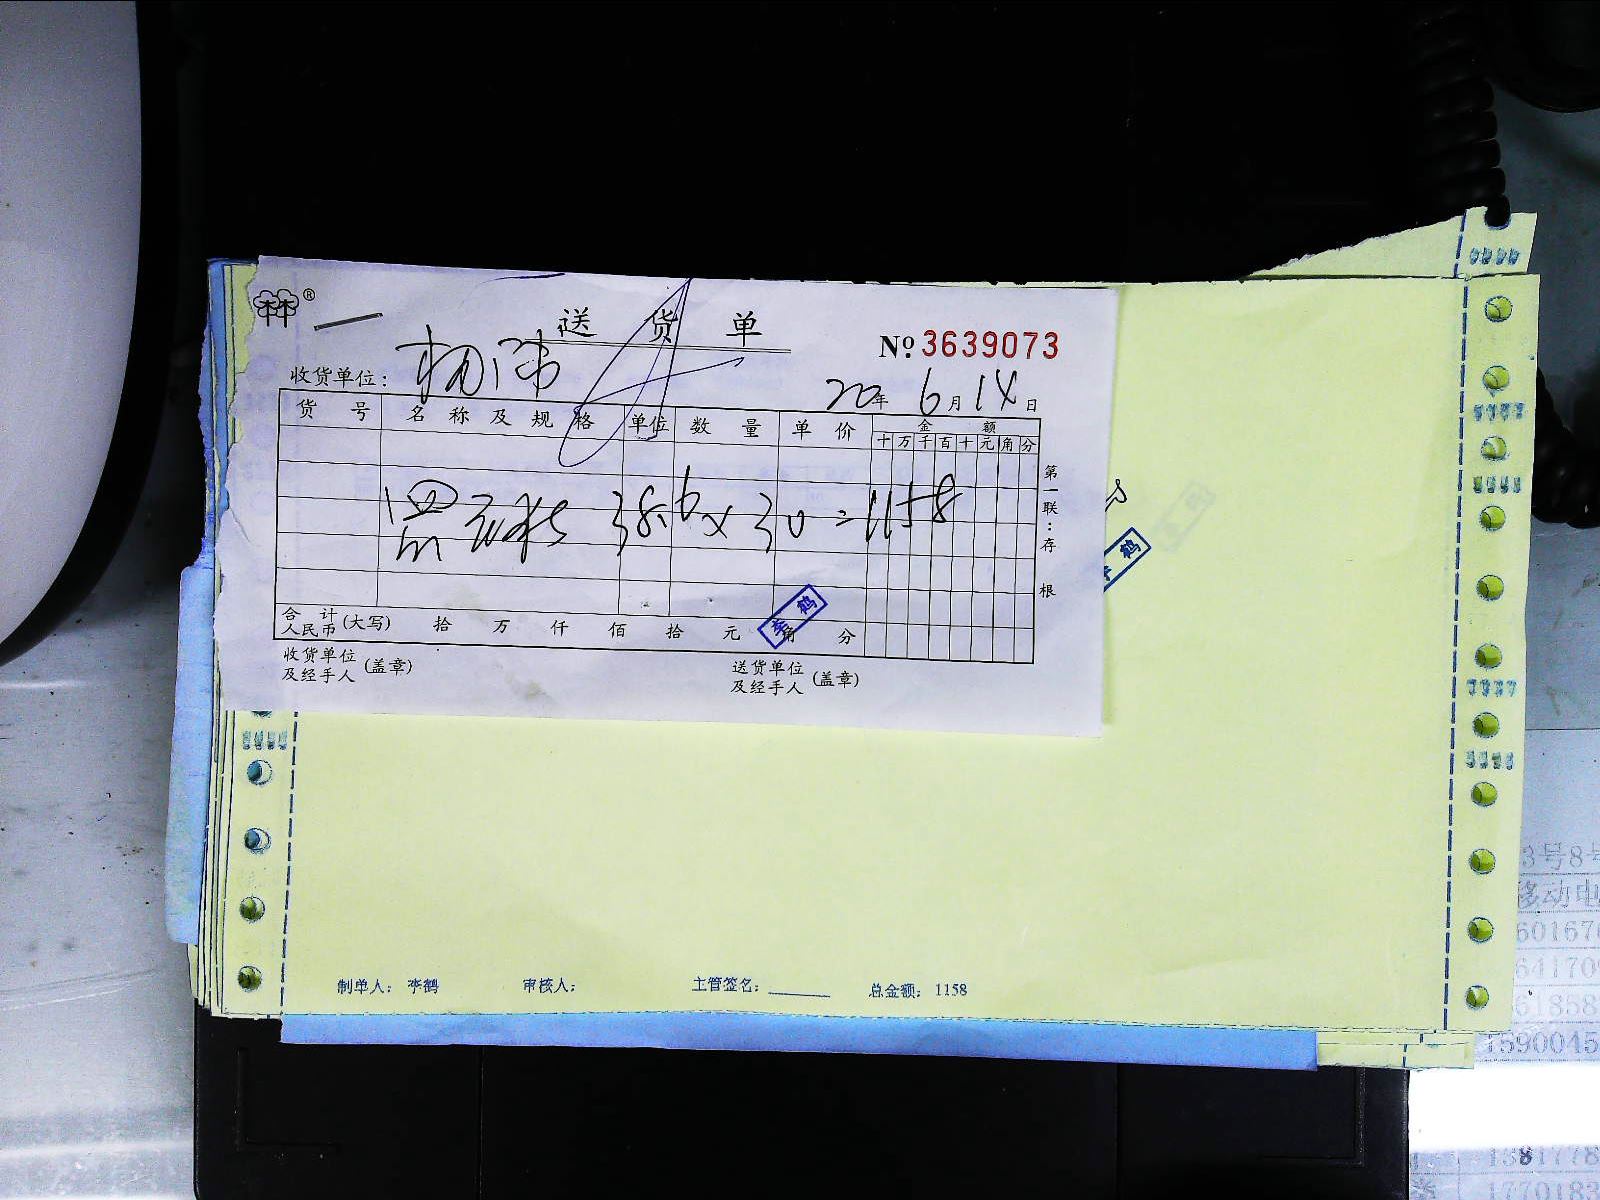 ®
送 货 单
№ 3639073
收货单位: 杨伟
20年 6月 14日
货 号 名 称 及 规 格 单位 数 量 单 价 金 额
十 万 千 百 十 元 角 分
38.6 x 30 = 1158
第一联:存根
合 计
人民币 (大写) 拾 万 仟 佰 拾 元 角 分
李鹤
鹤
收货单位
及经手人 (盖章)
送货单位
及经手人 (盖章)
制单人: 李鹤 审核人: 主管签名: 总金额: 1158
3号8号
移动电
60167
64170
61858
1590045
1381778
1770183